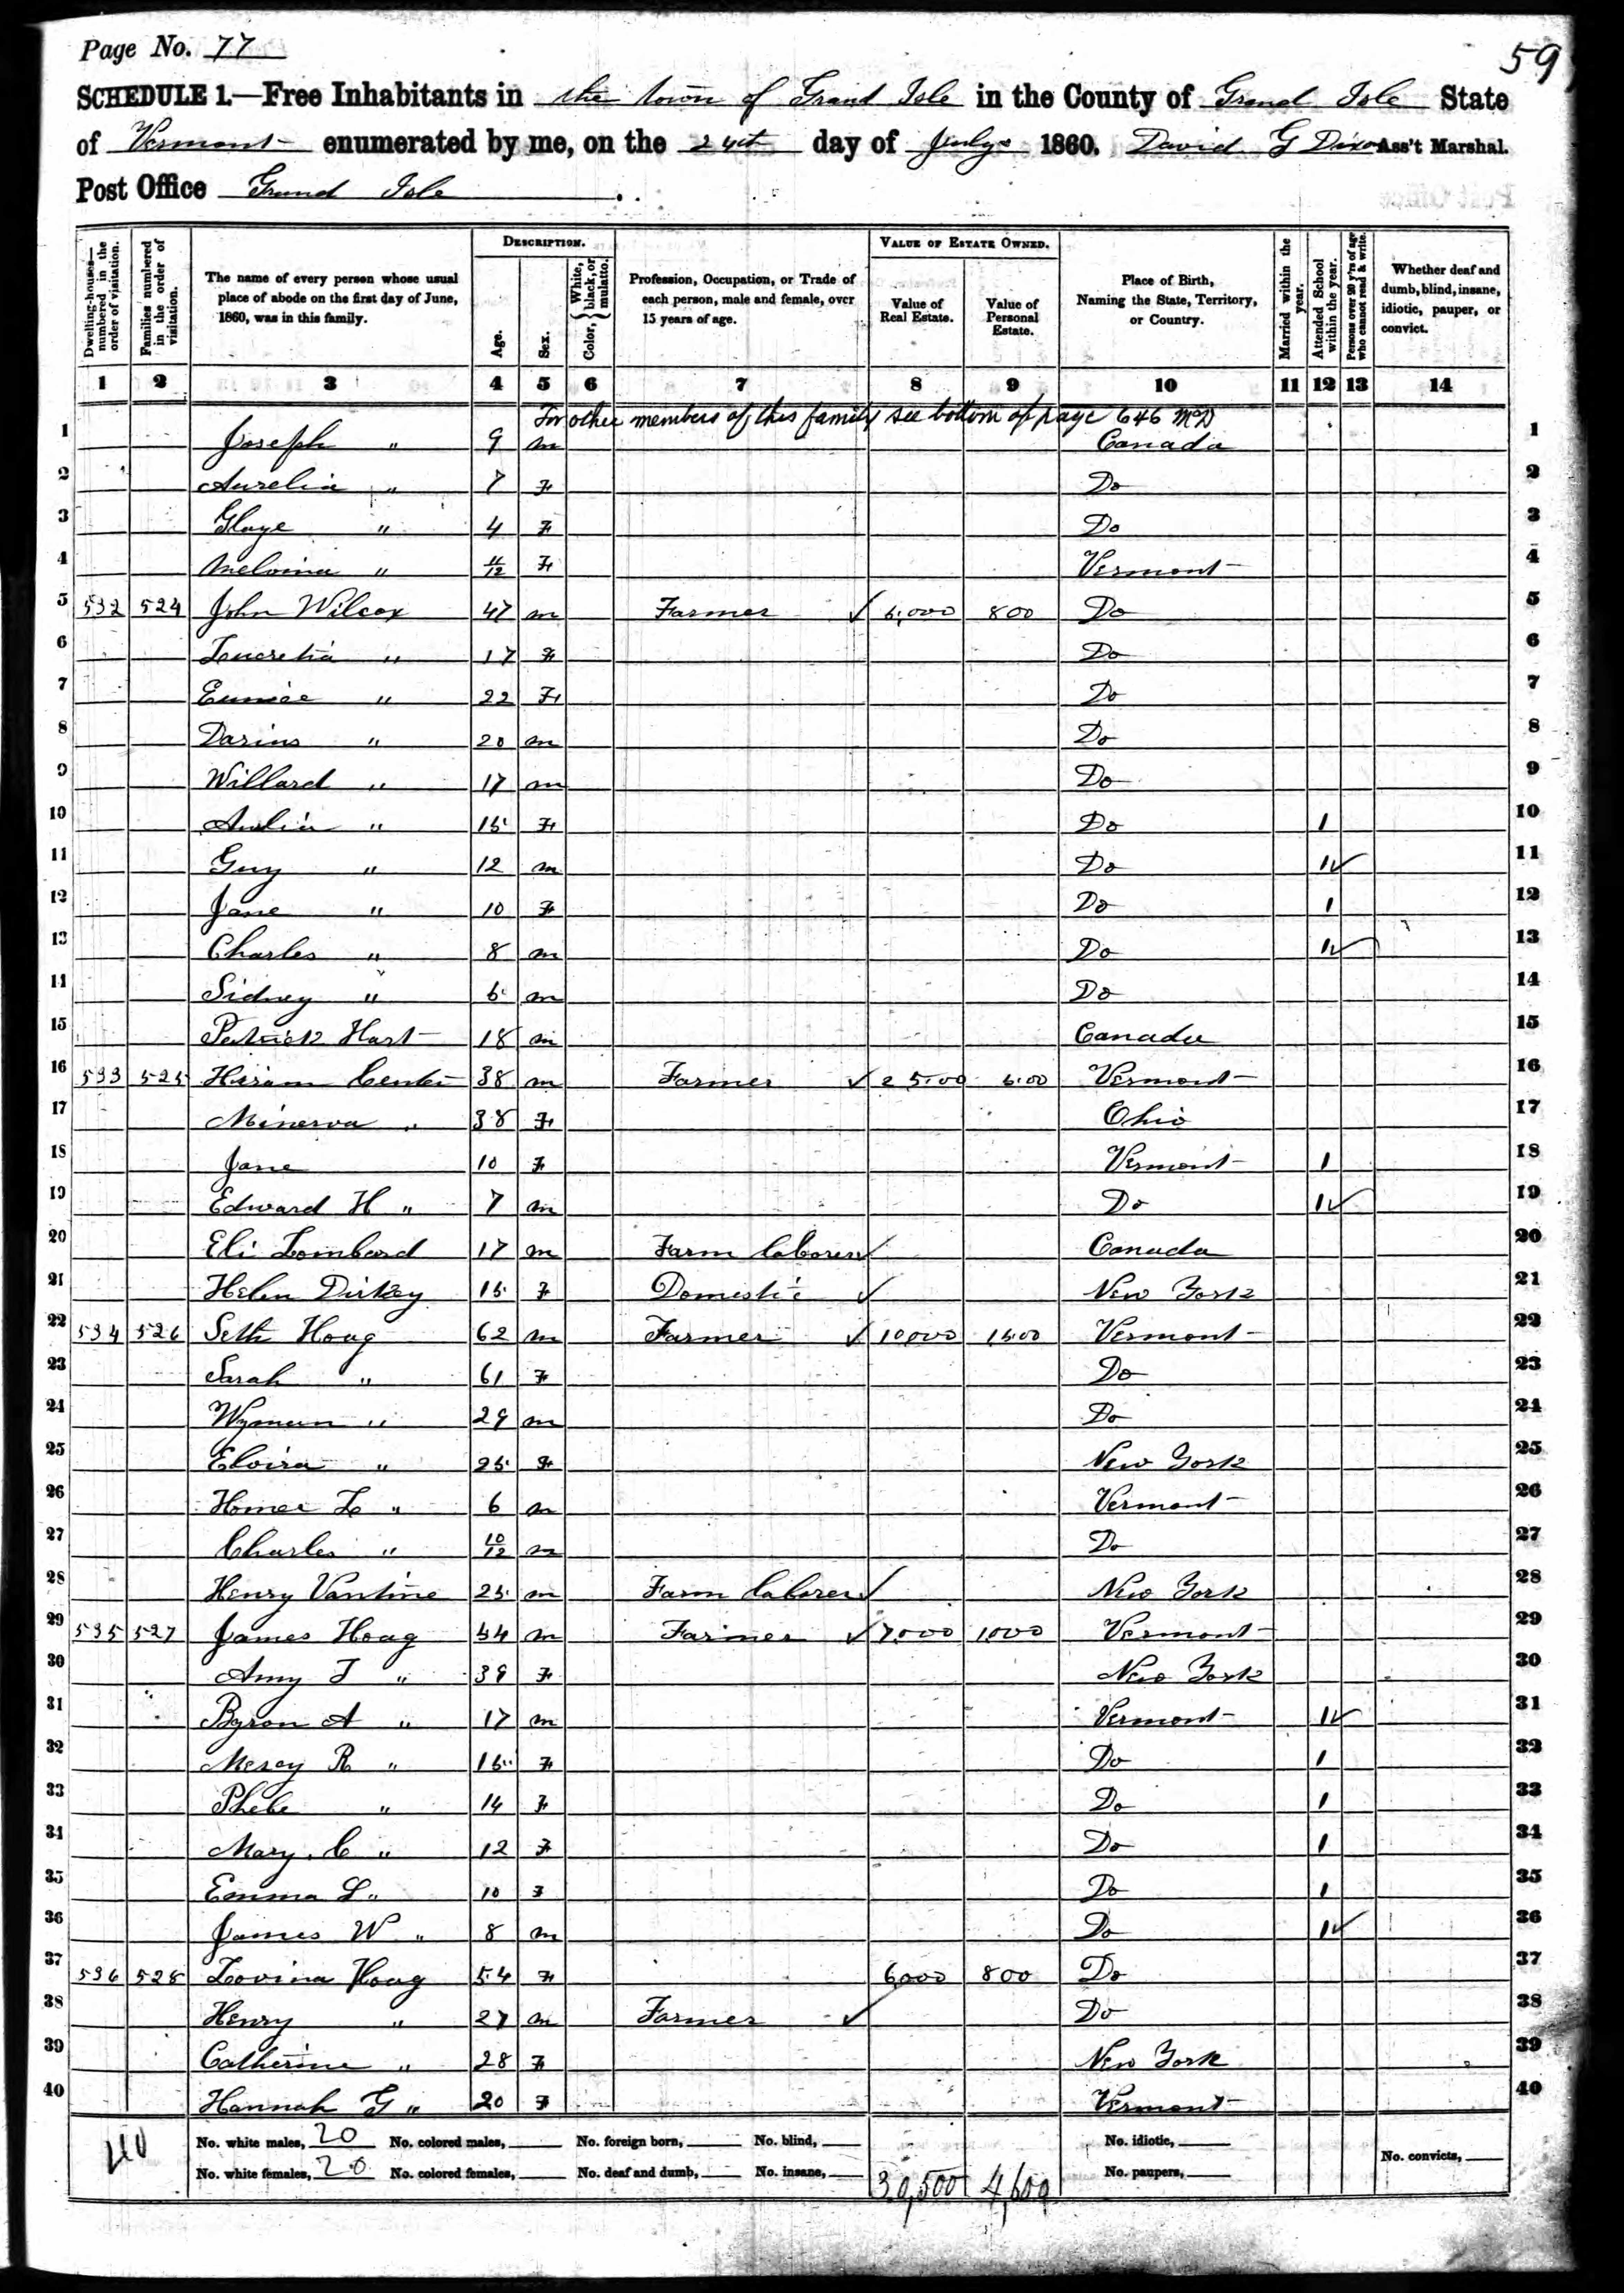 Page No. 77
59
SCHEDULE 1.—Free Inhabitants in the town of Grand Isle in the County of Grand Isle State
of Vermont enumerated by me, on the 24th day of July 1860. David G Dixon Ass't Marshal.
Post Office Grand Isle.
Dwelling-houses—numbered in the order of visitation. Families numbered in the order of visitation. The name of every person whose usual place of abode on the first day of June, 1860, was in this family. DESCRIPTION. Age. Sex. Color, {White, black, or mulatto. Profession, Occupation, or Trade of each person, male and female, over 15 years of age. VALUE OF ESTATE OWNED. Value of Real Estate. Value of Personal Estate. Place of Birth, Naming the State, Territory, or Country. Married within the year. Attended School within the year. Persons over 20 y'rs of age who cannot read & write. Whether deaf and dumb, blind, insane, idiotic, pauper, or convict.
1 2 3 4 5 6 7 8 9 10 11 12 13 14
For other members of this family see bottom of page 646 McD
1 Joseph " 9 m Canada 1
2 Aurelia " 7 F Do 2
3 " 4 F Do 3
4 Melvina " 11/12 F Vermont 4
5 532 524 John Wilcox 47 m Farmer ✓ 6,000 800 Do 5
6 Lucretia " 17 F Do 6
7 Eunice " 22 F Do 7
8 Darius " 20 m Do 8
9 Willard " 17 m Do 9
10 " 15 F Do 1 10
11 Guy " 12 m Do 1✓ 11
12 Jane " 10 F Do 1 12
13 Charles " 8 m Do 1✓ 13
14 Sidney " 6 m Do 14
15 Patrick Hart 18 m Canada 15
16 533 525 Hiram Center 38 m Farmer ✓ 2500 600 Vermont 16
17 Minerva " 38 F Ohio 17
18 Jane 10 F Vermont 1 18
19 Edward H " 7 m Do 1✓ 19
20 Eli Lombard 17 m Farm laborer ✓ Canada 20
21 Helen Dirkey 15 F Domestic ✓ New York 21
22 534 526 Seth Hoag 62 m Farmer ✓ 10,000 1500 Vermont 22
23 Sarah " 61 F Do 23
24 Wyman " 29 m Do 24
25 Elvira " 25 F New York 25
26 Homer L " 6 m Vermont 26
27 Charles " 10/12 m Do 27
28 Henry Vantine 25 m Farm laborer ✓ New York 28
29 535 527 James Hoag 44 m Farmer ✓ 7,000 1,000 Vermont 29
30 Amy T " 39 F New York 30
31 Byron A " 17 m Vermont 1✓ 31
32 Mercy R " 15 F Do 1 32
33 Phebe " 14 F Do 1 33
34 Mary C " 12 F Do 1 34
35 Emma L " 10 F Do 1 35
36 James W " 8 m Do 1✓ 36
37 536 528 Lovina Hoag 54 F 6000 800 Do 37
38 Henry " 27 m Farmer ✓ Do 38
39 Catherine " 28 F New York 39
40 Hannah G " 20 F Vermont 40
40 No. white males, 20 No. colored males, No. foreign born, No. blind, No. idiotic,
No. white females, 20 No. colored females, No. deaf and dumb, No. insane, 30,500 4,600 No. paupers, No. convicts,